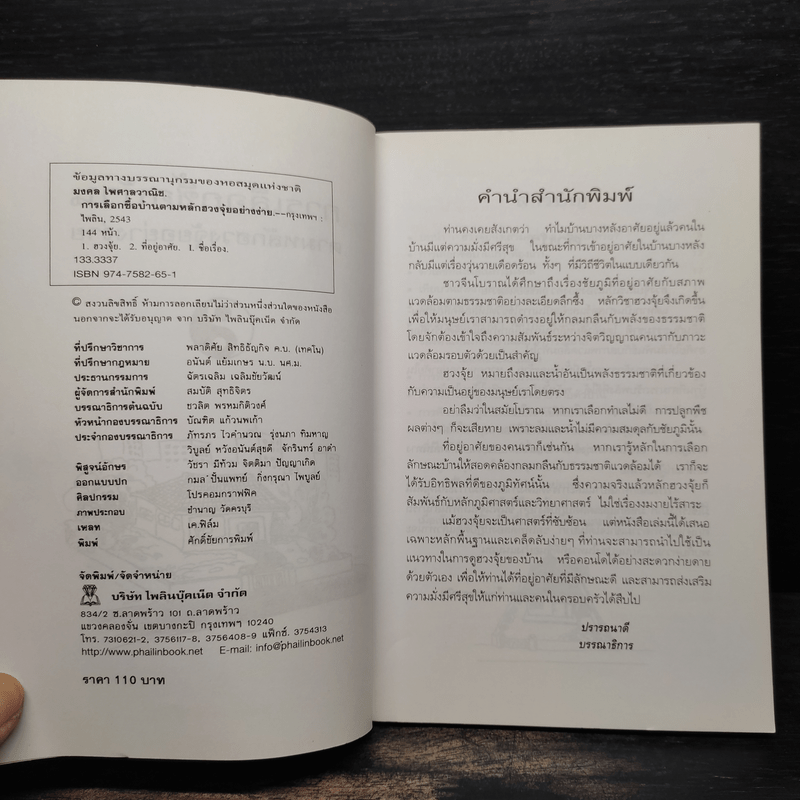 ข้อมูลทางบรรณานุกรมของหอสมุดแห่งชาติ
มงคล ไพศาลวาณิช.
การเลือกซื้อบ้านตามหลักฮวงจุ้ยอย่างง่าย.--กรุงเทพฯ :
ไพลิน, 2543
144 หน้า.
1. ฮวงจุ้ย. 2. ที่อยู่อาศัย. I. ชื่อเรื่อง.
133.3337
ISBN 974-7582-65-1
© สงวนลิขสิทธิ์ ห้ามการลอกเลียนไม่ว่าส่วนหนึ่งส่วนใดของหนังสือ
นอกจากจะได้รับอนุญาต จาก บริษัท ไพลินบุ๊คเน็ต จำกัด
ที่ปรึกษาวิชาการ พลาดิศัย สิทธิธัญกิจ ค.บ. (เทคโน)
ที่ปรึกษากฎหมาย อนันต์ แย้มเกษร น.บ. นศ.ม.
ประธานกรรมการ ฉัตรเฉลิม เฉลิมชัยวัฒน์
ผู้จัดการสำนักพิมพ์ สมบัติ สุทธิจิตร
บรรณาธิการต้นฉบับ ชวลิต พรหมกิติวงศ์
หัวหน้ากองบรรณาธิการ บัณฑิต แก้วนพเก้า
ประจำกองบรรณาธิการ ภัทรภร ไวคำนวณ รุ่งนภา ทิมหาญ
วิบูลย์ หวังอนันต์สุขดี จักรินทร์ อาดำ
พิสูจน์อักษร วัชรา มีท้วม จิตติมา ปัญญาเกิด
ออกแบบปก กมล ปิ่นแพทย์ กิ่งกรุณา ไพบูลย์
ศิลปกรรม โปรคอมกราฟฟิค
ภาพประกอบ ชำนาญ วัดครบุรี
เพลท เค.ฟิล์ม
พิมพ์ ศักดิ์ชัยการพิมพ์
จัดพิมพ์/จัดจำหน่าย
บริษัท ไพลินบุ๊คเน็ต จำกัด
834/2 ซ.ลาดพร้าว 101 ถ.ลาดพร้าว
แขวงคลองจั่น เขตบางกะปิ กรุงเทพฯ 10240
โทร. 7310621-2, 3756117-8, 3756408-9 แฟ็กซ์. 3754313
http://www.phailinbook.net E-mail: info@phailinbook.net
ราคา 110 บาท
คำนำสำนักพิมพ์
ท่านคงเคยสังเกตว่า ทำไมบ้านบางหลังอาศัยอยู่แล้วคนใน
บ้านมีแต่ความมั่งมีศรีสุข ในขณะที่การเข้าอยู่อาศัยในบ้านบางหลัง
กลับมีแต่เรื่องวุ่นวายเดือดร้อน ทั้งๆ ที่มีวิถีชีวิตในแบบเดียวกัน
ชาวจีนโบราณได้ศึกษาถึงเรื่องชัยภูมิที่อยู่อาศัยกับสภาพ
แวดล้อมตามธรรมชาติอย่างละเอียดลึกซึ้ง หลักวิชาฮวงจุ้ยจึงเกิดขึ้น
เพื่อให้มนุษย์เราสามารถดำรงอยู่ให้กลมกลืนกับพลังของธรรมชาติ
โดยจักต้องเข้าใจถึงความสัมพันธ์ระหว่างจิตวิญญาณคนเรากับภาวะ
แวดล้อมรอบตัวด้วยเป็นสำคัญ
ฮวงจุ้ย หมายถึงลมและน้ำอันเป็นพลังธรรมชาติที่เกี่ยวข้อง
กับความเป็นอยู่ของมนุษย์เราโดยตรง
อย่าลืมว่าในสมัยโบราณ หากเราเลือกทำเลไม่ดี การปลูกพืช
ผลต่างๆ ก็จะเสียหาย เพราะลมและน้ำไม่มีความสมดุลกับชัยภูมินั้น
ที่อยู่อาศัยของคนเราก็เช่นกัน หากเรารู้หลักในการเลือก
ลักษณะบ้านให้สอดคล้องกลมกลืนกับธรรมชาติแวดล้อมได้ เราก็จะ
ได้รับอิทธิพลที่ดีของภูมิทัศน์นั้น ซึ่งความจริงแล้วหลักฮวงจุ้ยก็
สัมพันธ์กับหลักภูมิศาสตร์และวิทยาศาสตร์ ไม่ใช่เรื่องงมงายไร้สาระ
แม้ฮวงจุ้ยจะเป็นศาสตร์ที่ซับซ้อน แต่หนังสือเล่มนี้ได้เสนอ
เฉพาะหลักพื้นฐานและเคล็ดลับง่ายๆ ที่ท่านจะสามารถนำไปใช้เป็น
แนวทางในการดูฮวงจุ้ยของบ้าน หรือคอนโดได้อย่างสะดวกง่ายดาย
ด้วยตัวเอง เพื่อให้ท่านได้ที่อยู่อาศัยที่มีลักษณะดี และสามารถส่งเสริม
ความมั่งมีศรีสุขให้แก่ท่านและคนในครอบครัวได้สืบไป
ปรารถนาดี
บรรณาธิการ